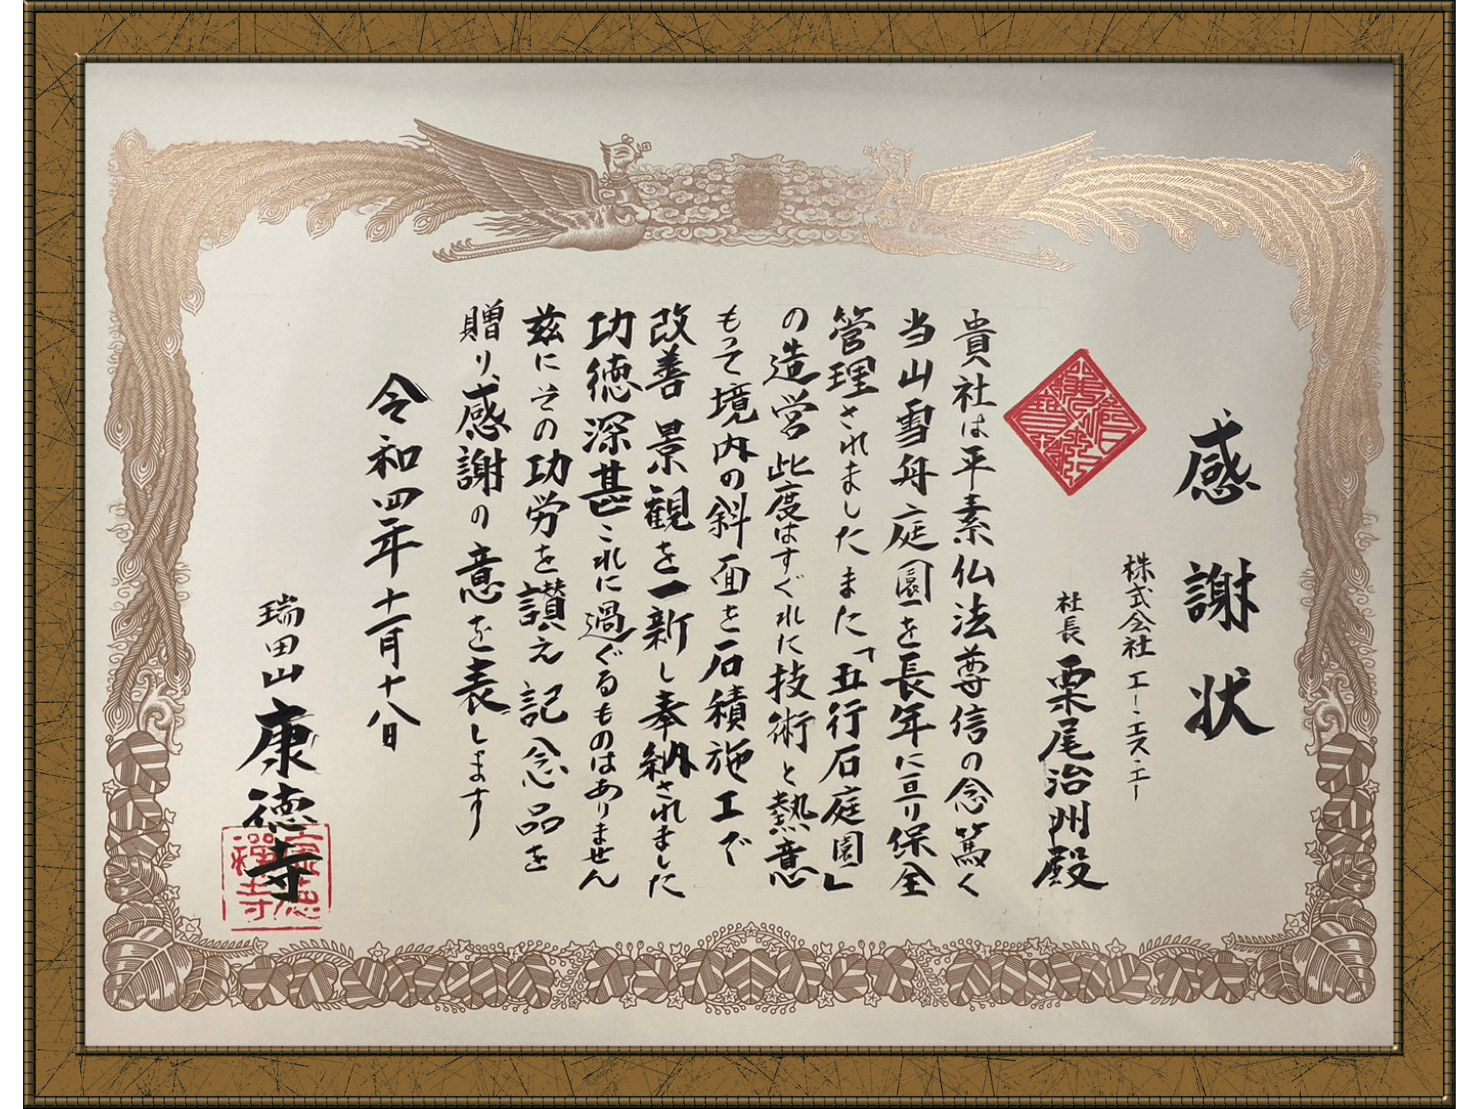 感謝状
株式会社 エー・エス・エー
社長 栗尾治州殿
貴社は平素仏法尊信の念篤く
当山雪舟庭園を長年に亘り保全
管理されましたまた「五行石庭園」
の造営此度はすぐれに技術と熱意
もって境内の斜面を石積施工で
改善景観を一新し奉納されました
功徳深甚これに過ぐるものはありません
茲にその功労を讃え記念品を
贈り、感謝の意を表します
令和四年十一月十八日
瑞田山 康徳寺
康徳禅寺